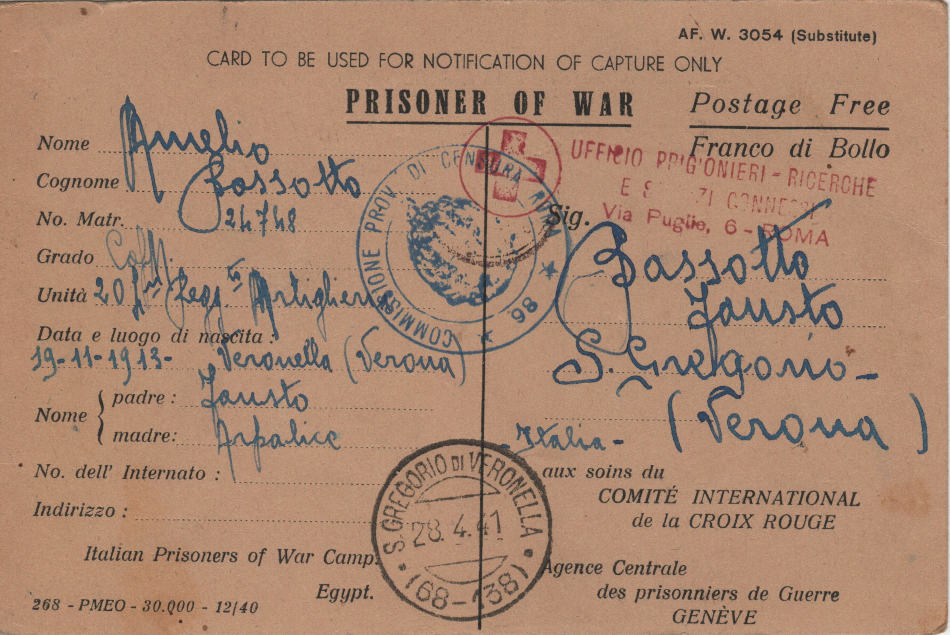 AF. W. 3054 (Substitute)
CARD TO BE USED FOR NOTIFICATION OF CAPTURE ONLY
PRISONER OF WAR
Postage Free
Franco di Bollo
Nome Amelio
Cognome Bassotto
No. Matr. 24748
Grado
Unità 20 Regg to Artiglieria
Data e luogo di nascita :
19-11-1913- Veronella (Verona)
Nome
padre : Fausto
madre: Arpalice
No. dell' Internato :
Indirizzo :
Italian Prisoners of War Camp.
Egypt.
268 - PMEO - 30.000 - 12/40
COMMISSIONE PROV. DI CENSURA
86
UFFICIO PRIGIONIERI - RICERCHE
E S ZI CONNESSI
Via Puglie, 6 - ROMA
Sig.
Bassotto
Fausto
S. Gregorio -
(Verona)
Italia -
aux soins du
COMITÉ INTERNATIONAL
de la CROIX ROUGE
Agence Centrale
des prisonniers de Guerre
GENÈVE
S. GREGORIO DI VERONELLA
28.4.41
(68-38)